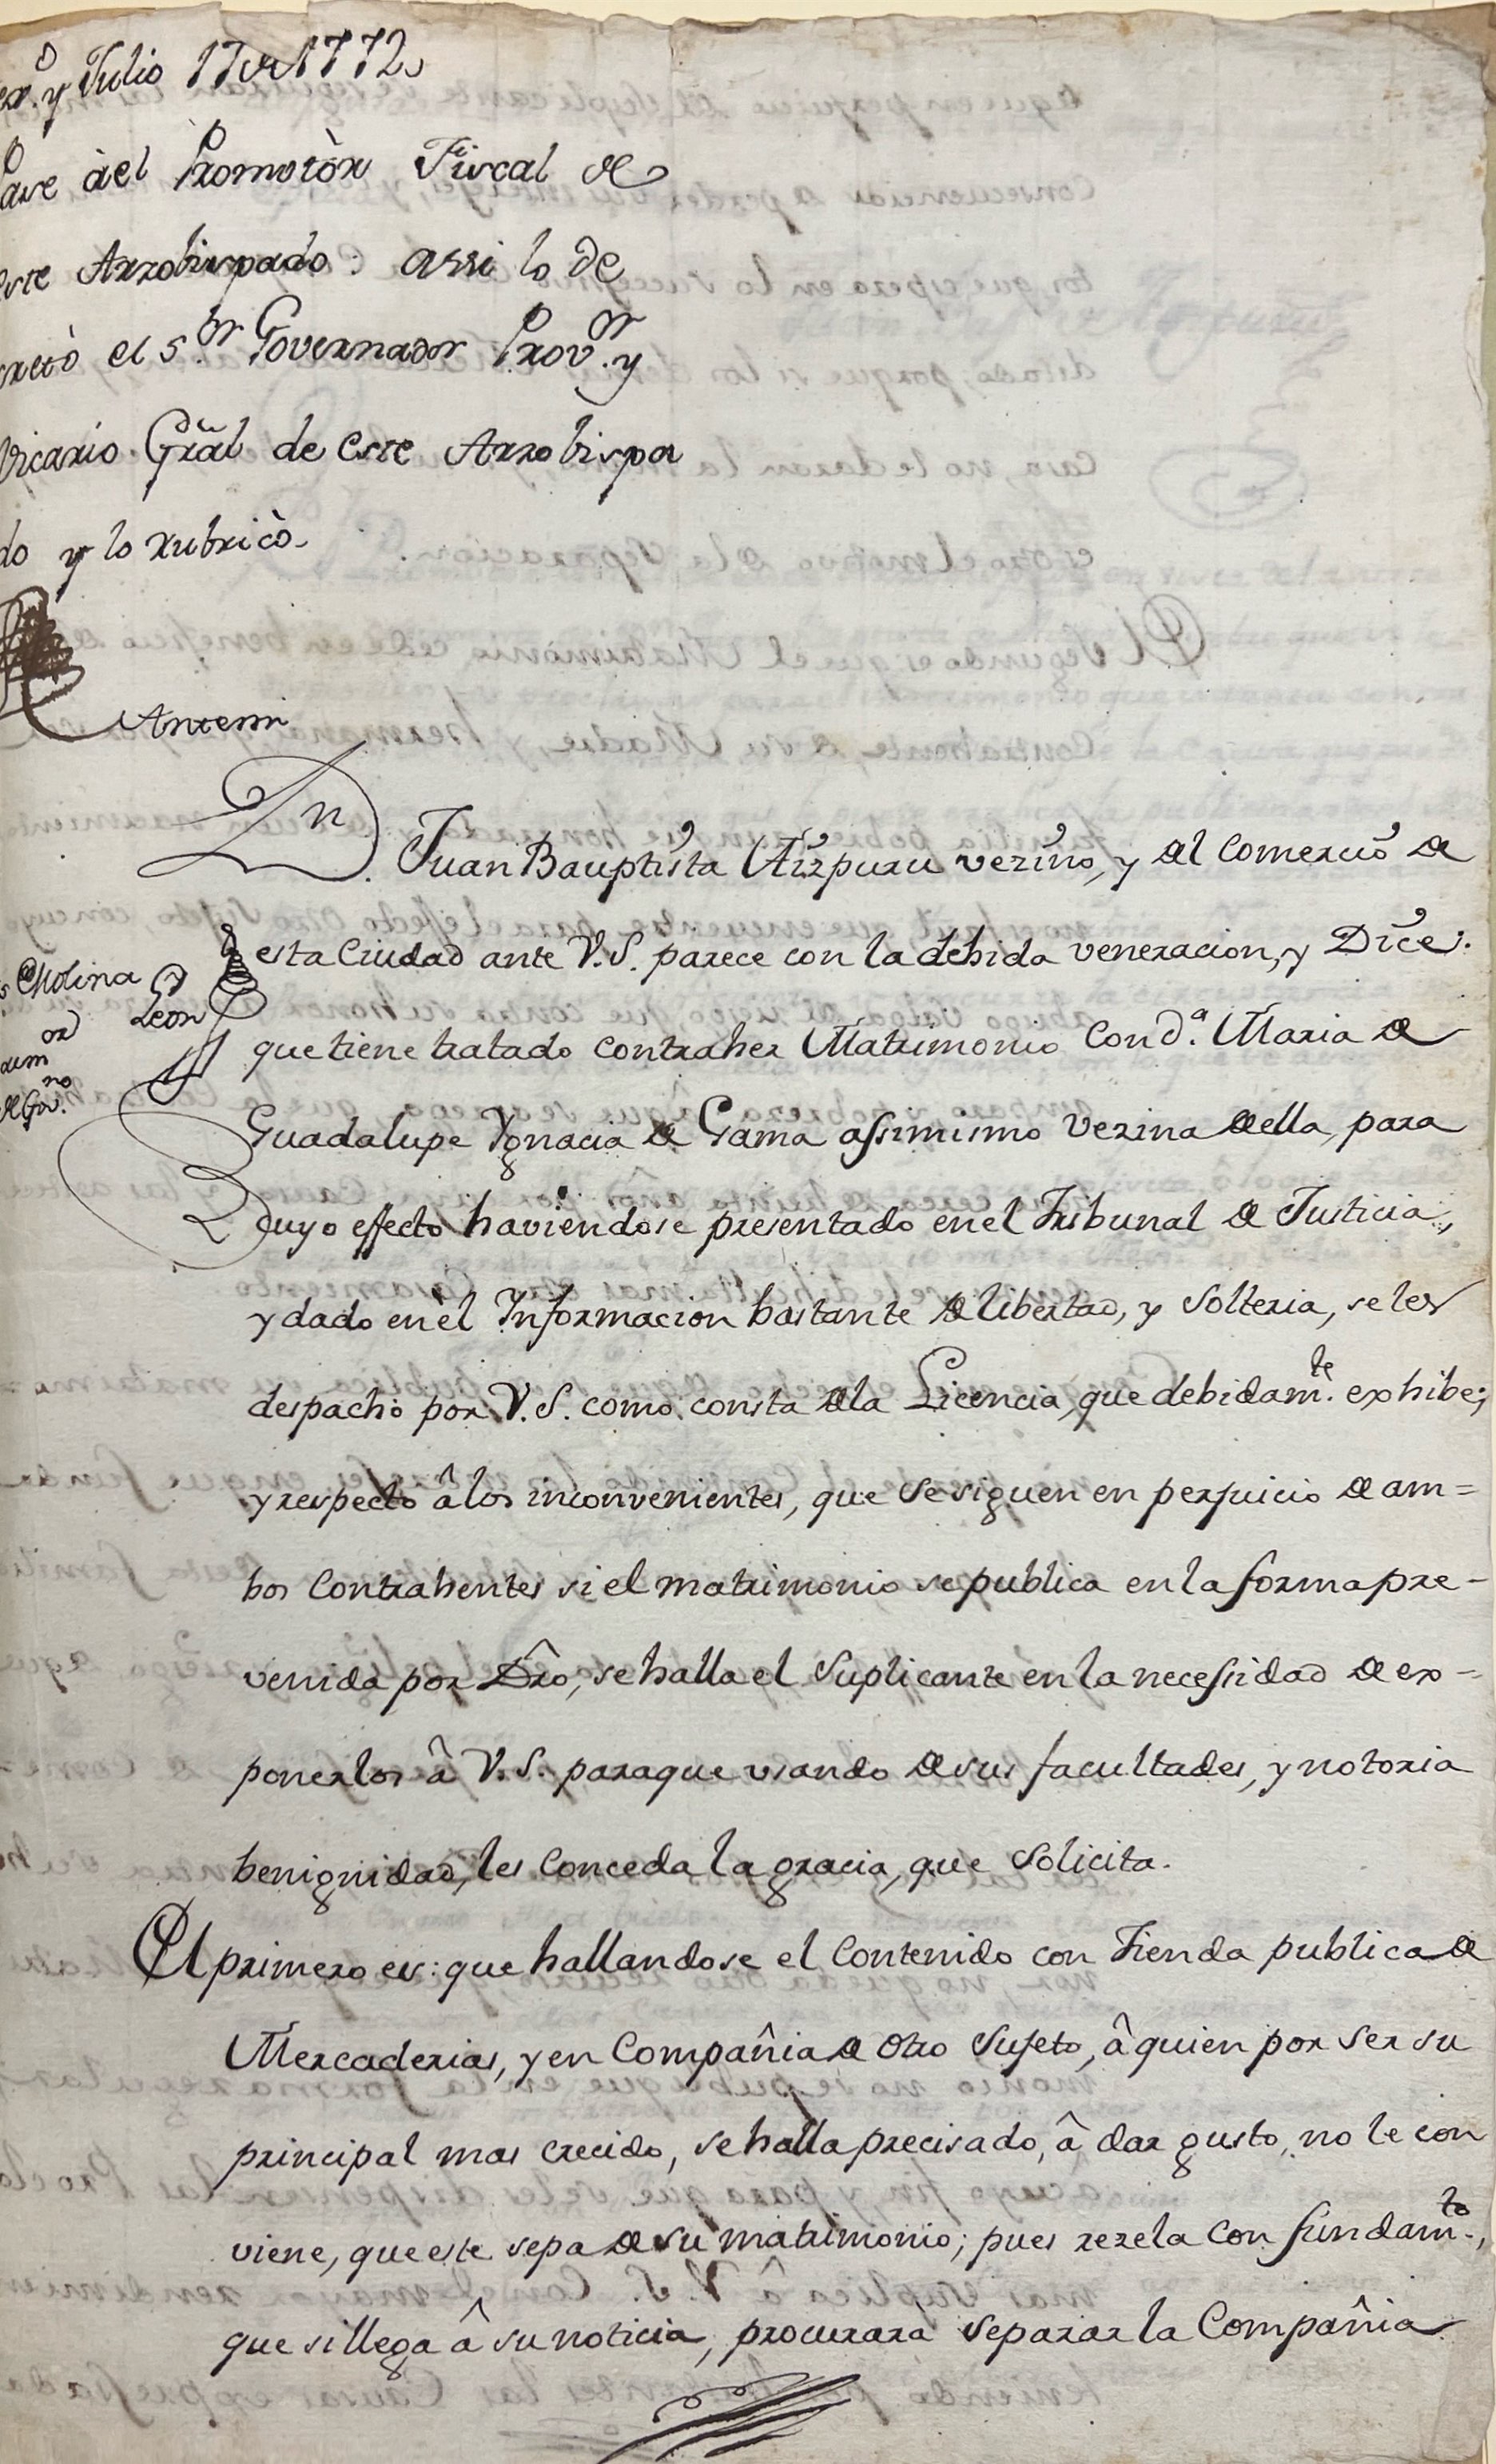 exº. y Julio 17 de 1772.
Pase à el Promotòr Fiscal de
este Arzobispado: assi lo de
cretò el S.ʳ Governador Prov.ʳ y
Vicario Grāl de este Arzobispa
do y lo rubricò.
Antemi
Dn. Juan Bauptista Aizpuru vezino, y del Comercio de
esta Ciudad ante V.S. parece con la debida veneracion, y Dice:
que tiene tratado contraher Matrimonio con d.ª Maria de
Guadalupe Ygnacia de Gama assimismo vezina de ella, para
cuyo effecto haviendose presentado en el Tribunal de Justicia,
y dado en èl Informacion bastante de libertad, y Solteria, se les
despachò por V.S. como consta de la Licencia, que debidam.te exhibe;
y respecto â los inconvenientes, que se siguen en perjuicio de am=
bos Contrahentes si el matrimonio se publica en la forma pre-
venida por Dr̂o, se halla el Suplicante en la necessidad de ex-
ponerlos â V.S. paraque usando de sus facultades, y notoria
benignidad, les conceda la gracia, que Solicita.
El primero es: que hallandose el Contenido con Tienda publica de
Mercaderias, y en Compañia de Otro Sujeto, â quien por ser su
principal mas crecido, se halla precisado, â dar gusto, no le con
viene, que este sepa de su matrimonio; pues rezela con fundam.to,
que si llega â su noticia, procurara separar la Compañia
Molina
Leon